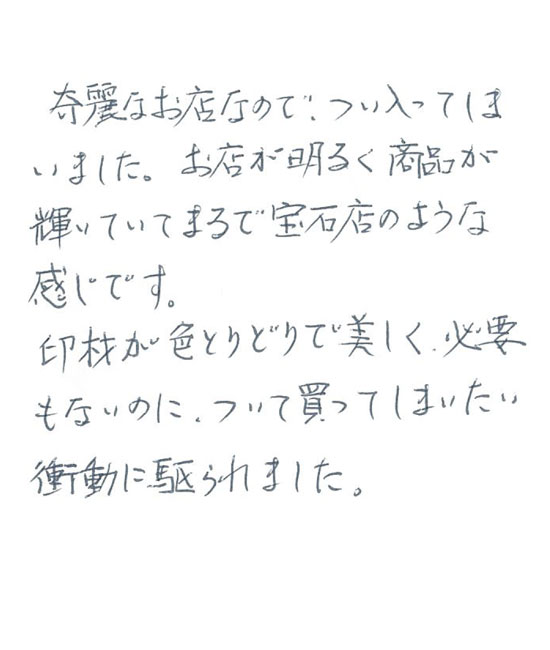 奇麗なお店なので、つい入ってしま
いました。お店が明るく商品が
輝いていてまるで宝石店のような
感じです。
印材が色とりどりで美しく、必要
もないのに、ついて買ってしまいたい
衝動に駆られました。